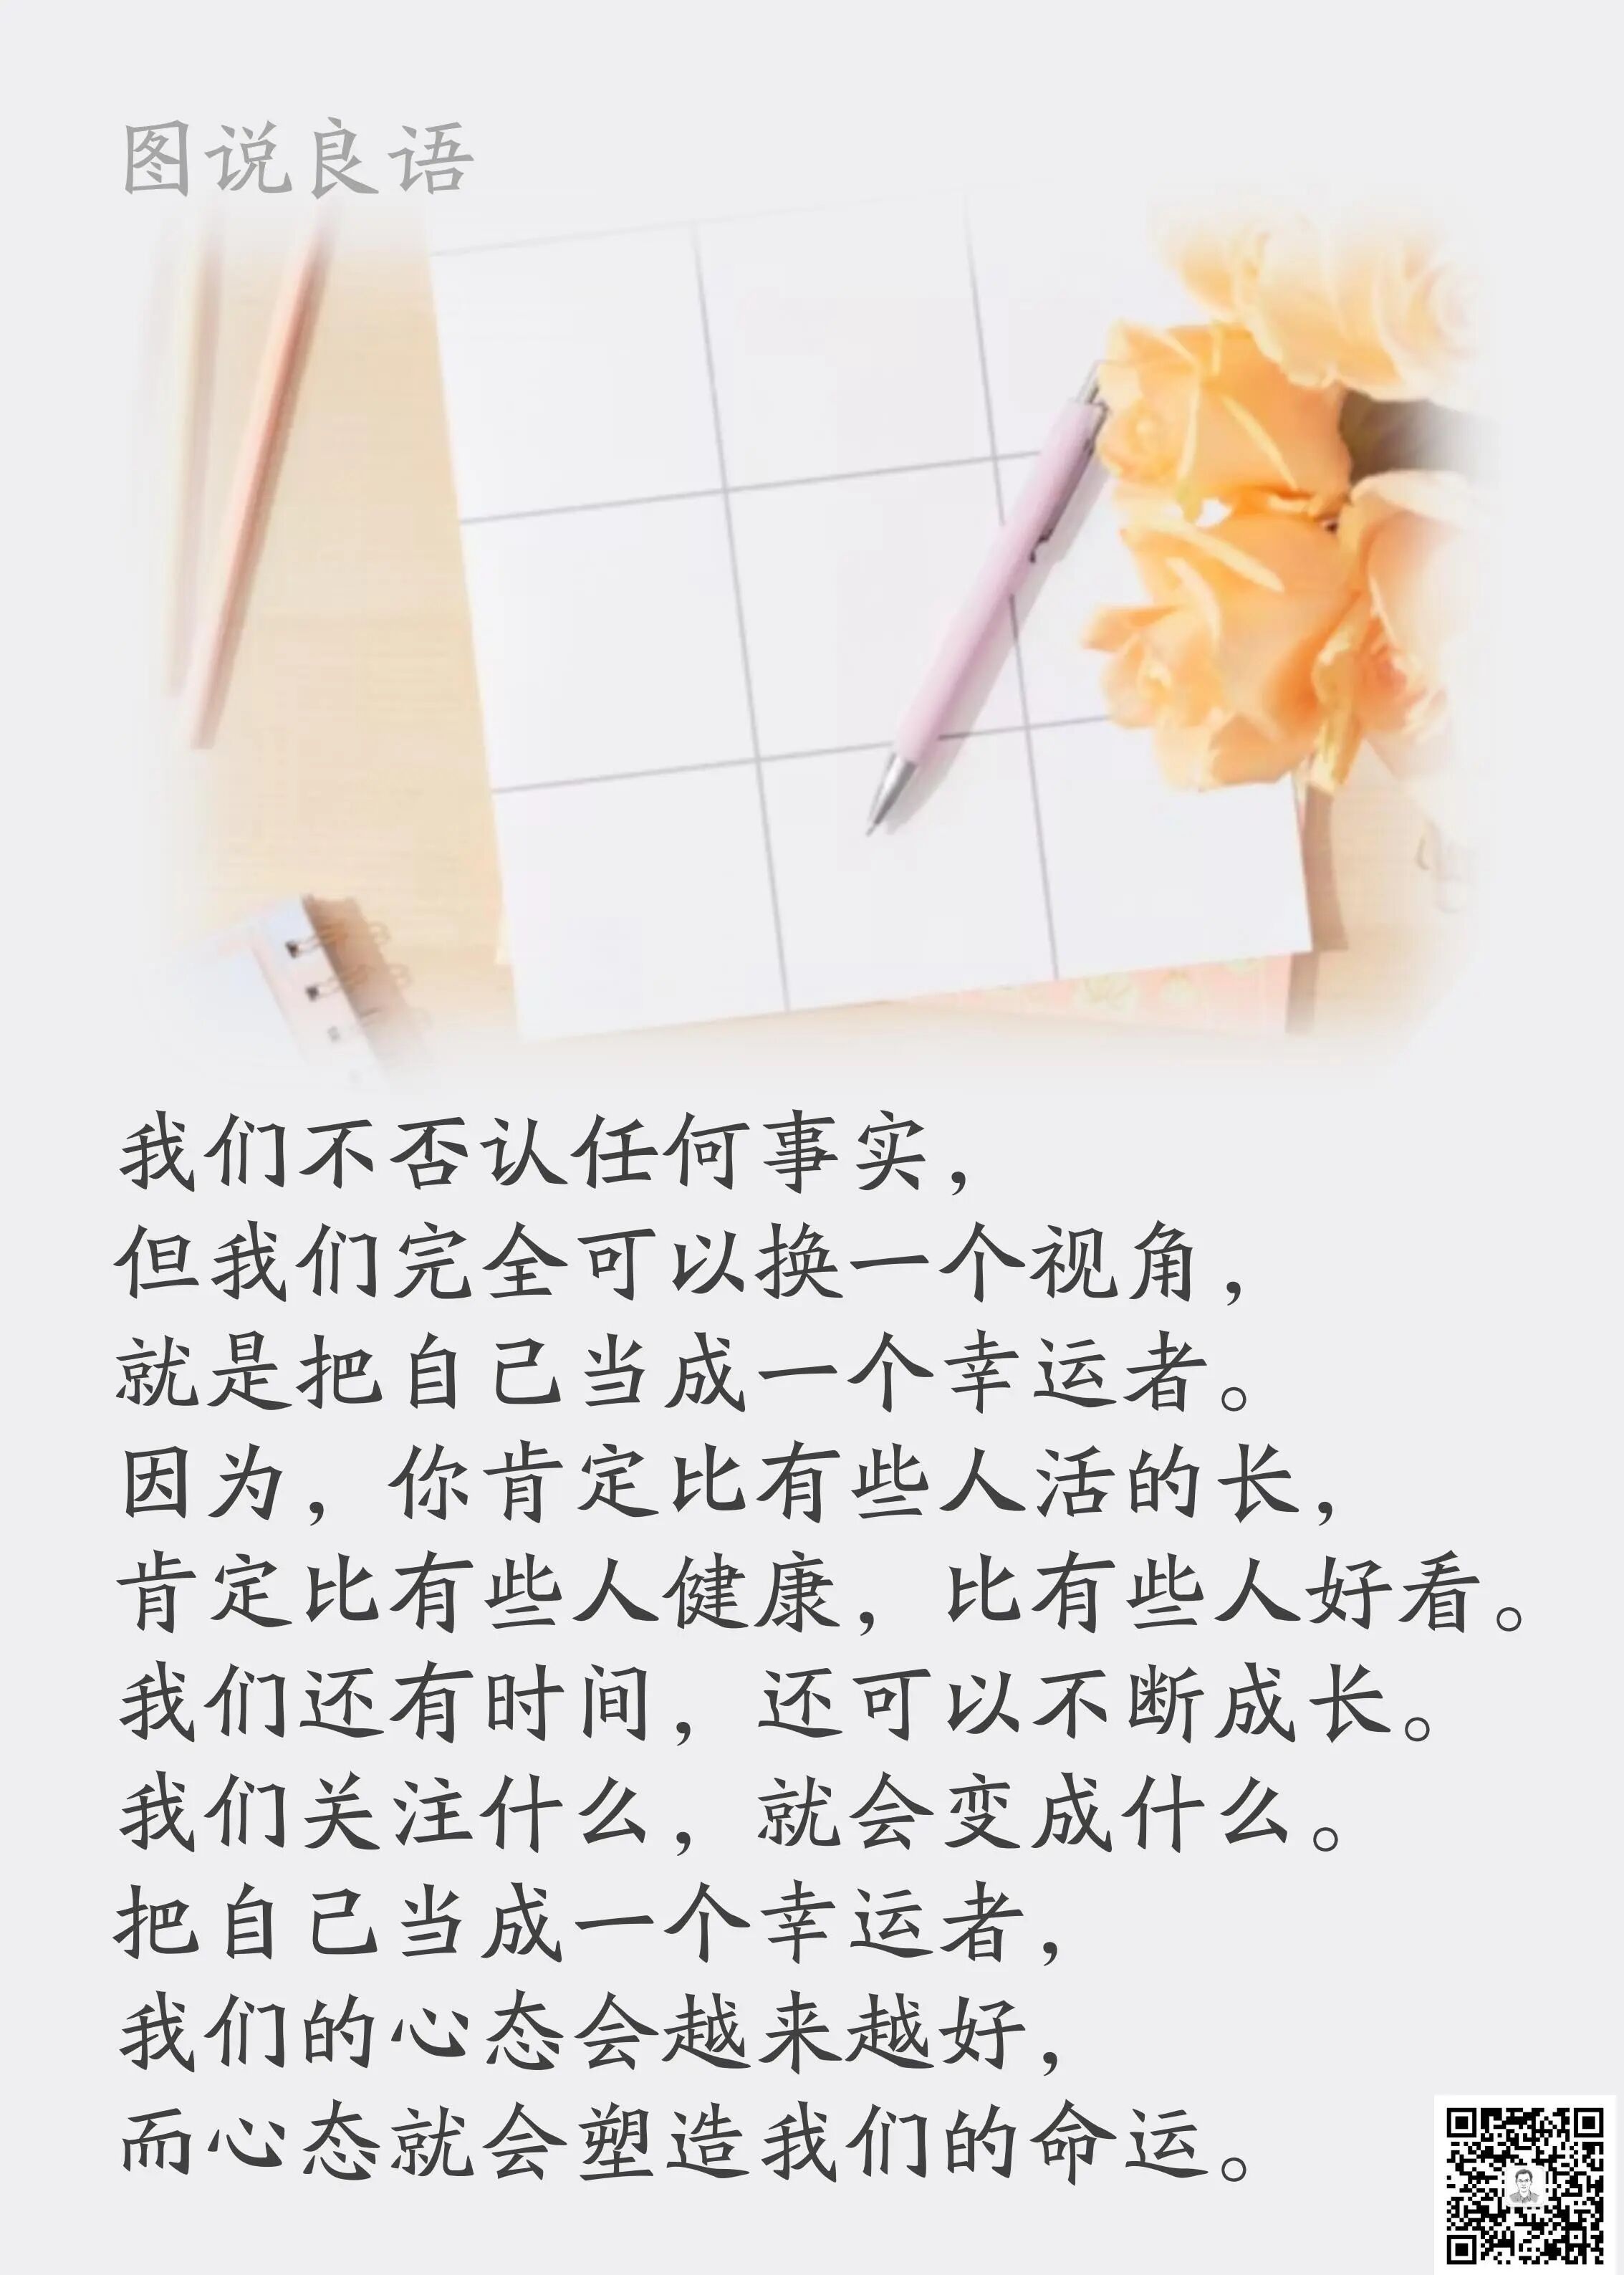 图说良语
我们不否认任何事实，
但我们完全可以换一个视角，
就是把自己当成一个幸运者。
因为，你肯定比有些人活的长，
肯定比有些人健康，比有些人好看。
我们还有时间，还可以不断成长。
我们关注什么，就会变成什么。
把自己当成一个幸运者，
我们的心态会越来越好，
而心态就会塑造我们的命运。